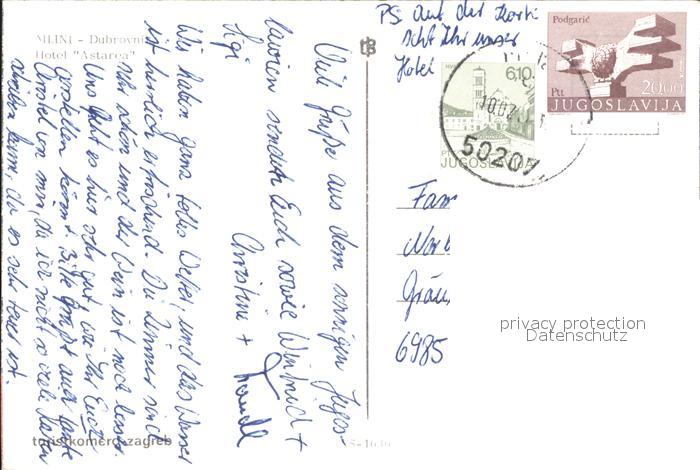 MLINI - Dubrovni
Hotel "Astarea"
PS auf der Karte
seht Ihr unser
Hotel
Viele Grüße aus dem sonnigen Jugos-
lawien senden Euch sowie Winfried +
Sigi
Christine + Traudl
Wir haben ganz tolles Wetter, und das Wasser
ist herrlich erfrischend. Die Zimmer sind
sehr schön und der Wein ist noch besser.
Uns geht es hier sehr gut, wie Ihr Euch
vorstellen könnt. Bitte grüßt auch Tante
von mir, da ich nicht so viele Karten
schreiben kann, da es sehr teuer ist.
Podgarić
Ptt 20.00
JUGOSLAVIJA
HVAR
6.10
PTT
JUGOSLAVIJA
50207
Fam
Norb
Gräu
6985
privacy protection
Datenschutz
turistkomerc-zagreb
S-1636